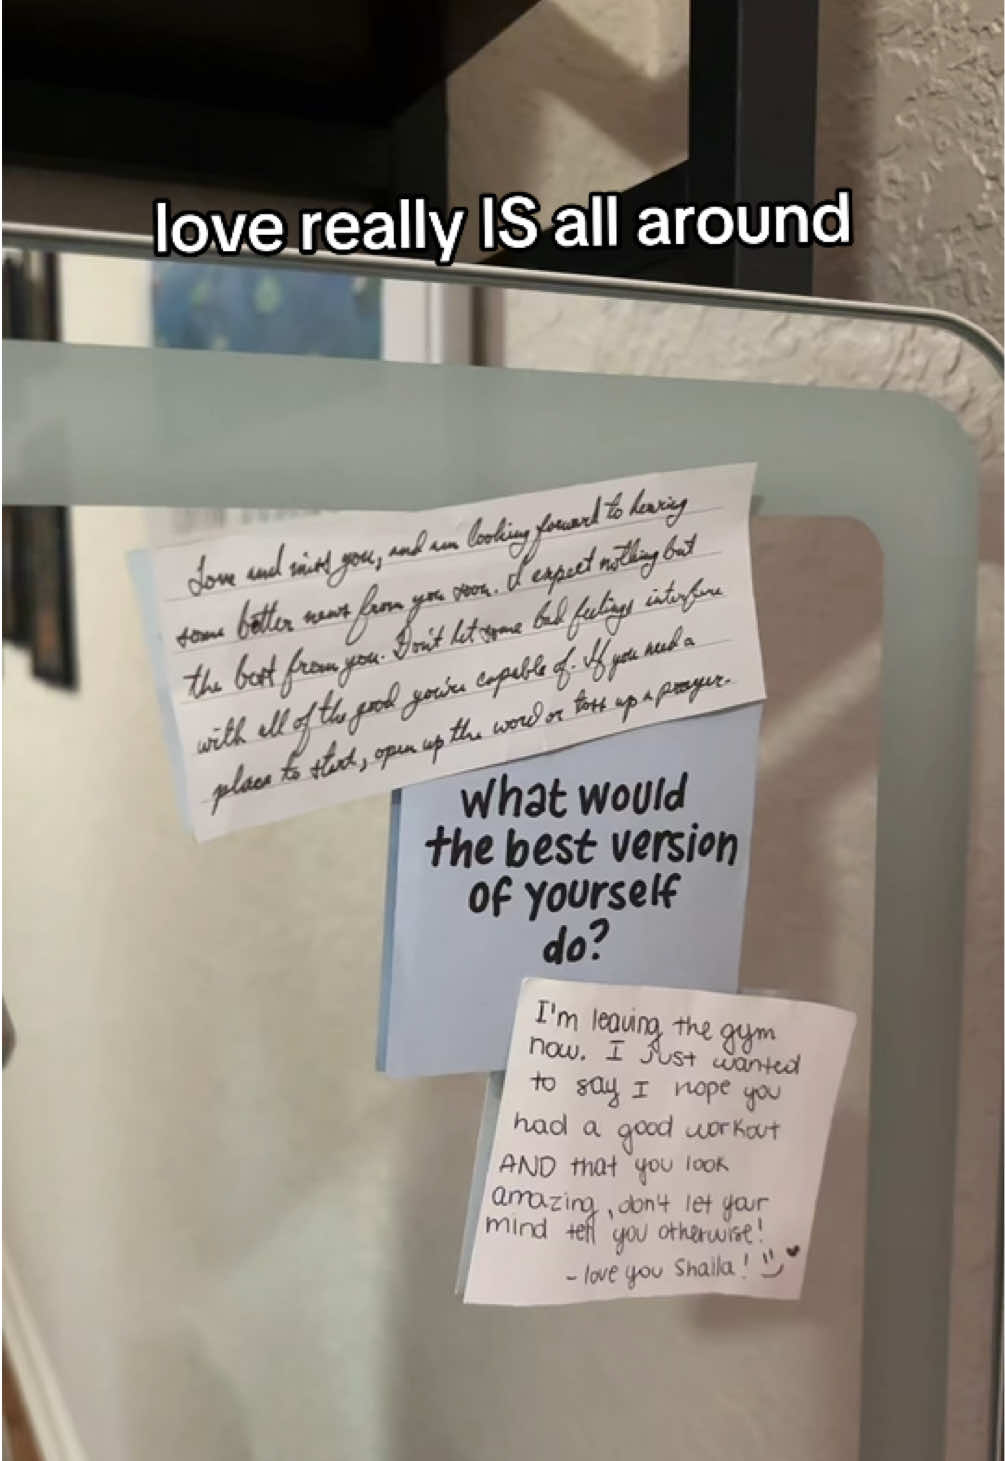 love really IS all around
Love and miss you, and am looking forward to hearing
some better news from you soon. I expect nothing but
the best from you. Don't let some bad feelings interfere
with all of the good you're capable of. If you need a
place to start, open up the word or toss up a prayer.
What would
the best version
of yourself
do?
I'm leaving the gym
now. I just wanted
to say I hope you
had a good workout
AND that you look
amazing, don't let your
mind tell you otherwise!
- love you Shaila!